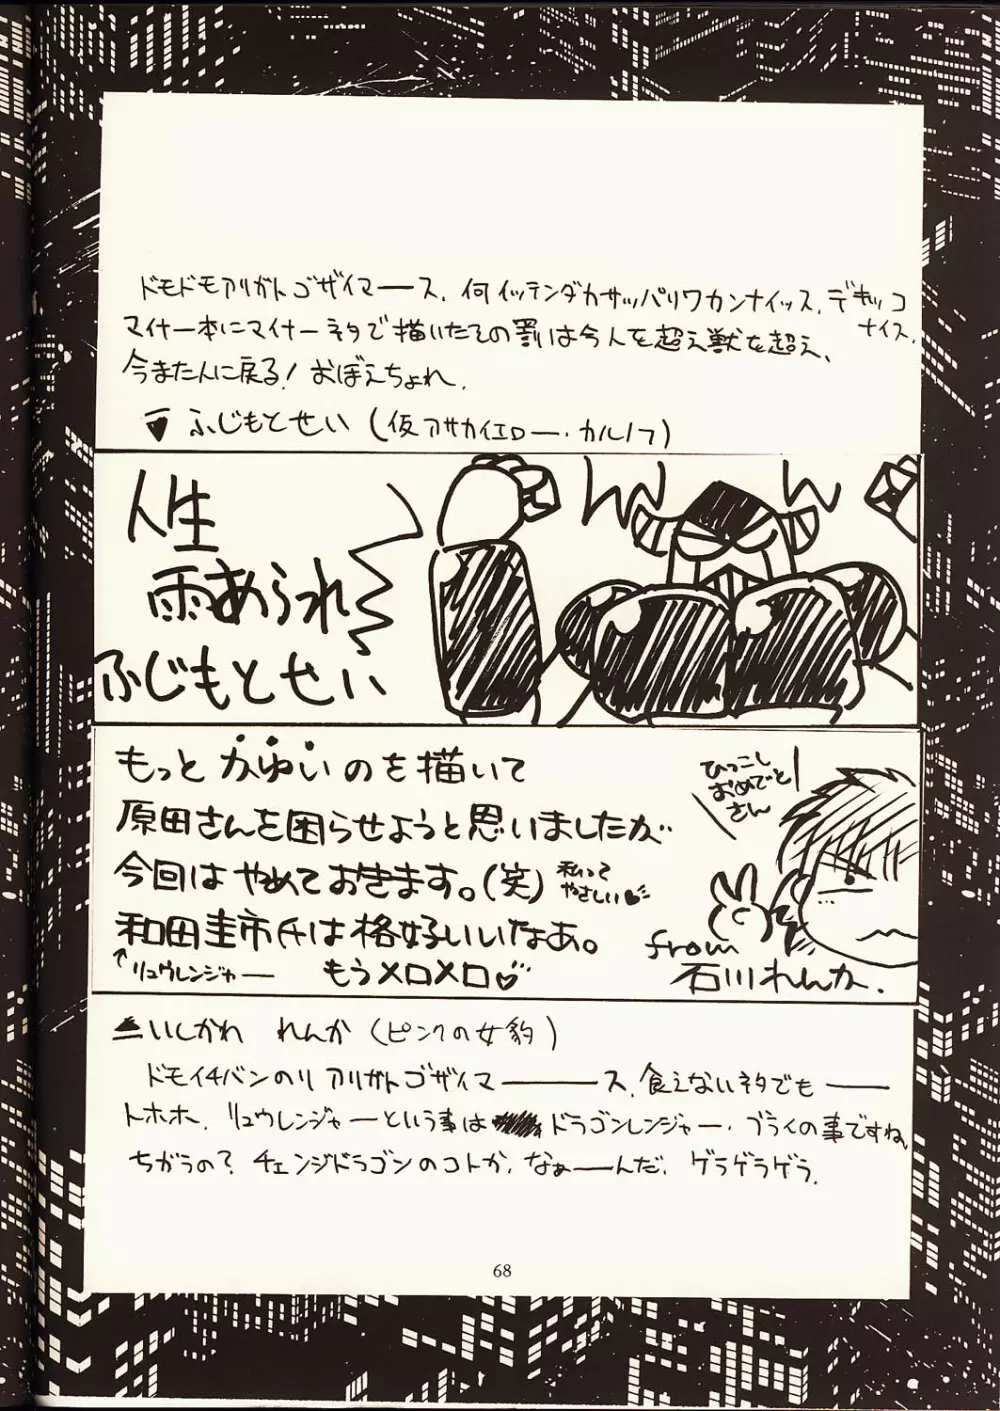 ドモドモアリガトゴザイマース、何イッテンダカサッパリワカンナイッス、デモッコ
ナイス、
マイナー本にマイナーネタで描いたその罰は今人を超え獣を超え、
今また人に戻る！おぼえちょれ、
ふじもとせい（仮アサカイエロー・カルノフ）
人生
雨あられ
ふじもとせい
もっとかゆいのを描いて
原田さんを困らせようと思いましたが
今回はやめておきます。（笑）
私って
やさしい♥
和田圭市氏は格好いいなあ。
↑リュウレンジャー もうメロメロ♡
ひっこし
おめでと
さん
from
石川れんか.
いしかわ れんか（ピンクの女豹）
ドモイチバンのリアリガトゴザイマーース、食えないネタでもー
トホホ、リュウレンジャーという事は ドラゴンレンジャー・ブライの事ですね、
ちがうの？チェンジドラゴンのコトか、なぁーんだ、ゲラゲラゲラ.
68